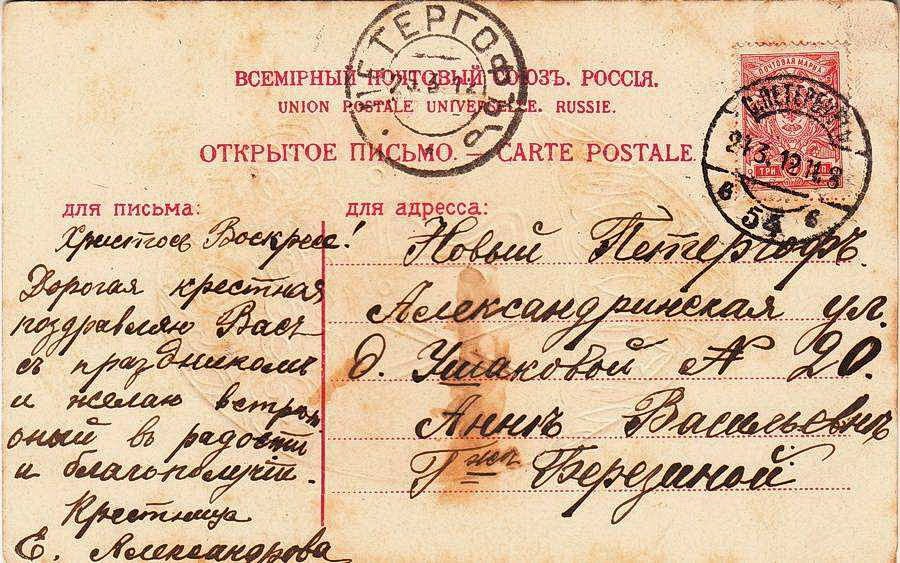 ПЕТЕРГОФЪ
ВСЕМІРНЫЙ ПОЧТОВЫЙ СОЮЗЪ. РОССІЯ.
UNION POSTALE UNIVERSELLE. RUSSIE.
ОТКРЫТОЕ ПИСЬМО. — CARTE POSTALE.
ПОЧТОВАЯ МАРКА
С.ПЕТЕРБУРГЪ
21.3.12
6 54 6
ТРИ
для письма:
Христосъ Воскресе!
Дорогая крестная
поздравляю Васъ
съ праздникомъ
и желаю встрѣ
оный въ радости
и благополучіи.
Крестница
Е. Александрова
для адресса:
Новый Петергофъ.
Александринская ул.
д. Ушаковой № 20.
Аннѣ Васильевнѣ
Г-жѣ Березиной